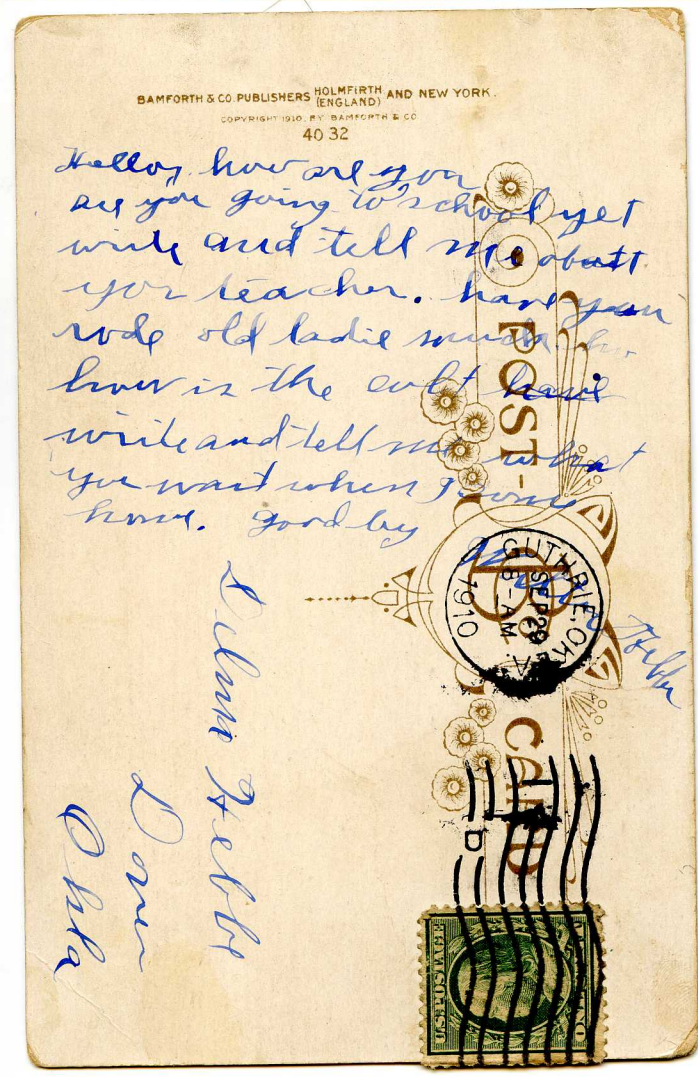 BAMFORTH & CO. PUBLISHERS HOLMFIRTH (ENGLAND) AND NEW YORK.
COPYRIGHT 1910, BY BAMFORTH & CO
4032
Helloy how are you
are you going to school yet
write and tell me abutt
yor teacher. have you
rode old ladie much
how is the colt have
write and tell me what
you want when I come
home. good by
Hebbe
POST-CARD
GUTHRIE, OKLA.
SEP 29
8-AM
1910
D
Hebbe
Dover
Okla